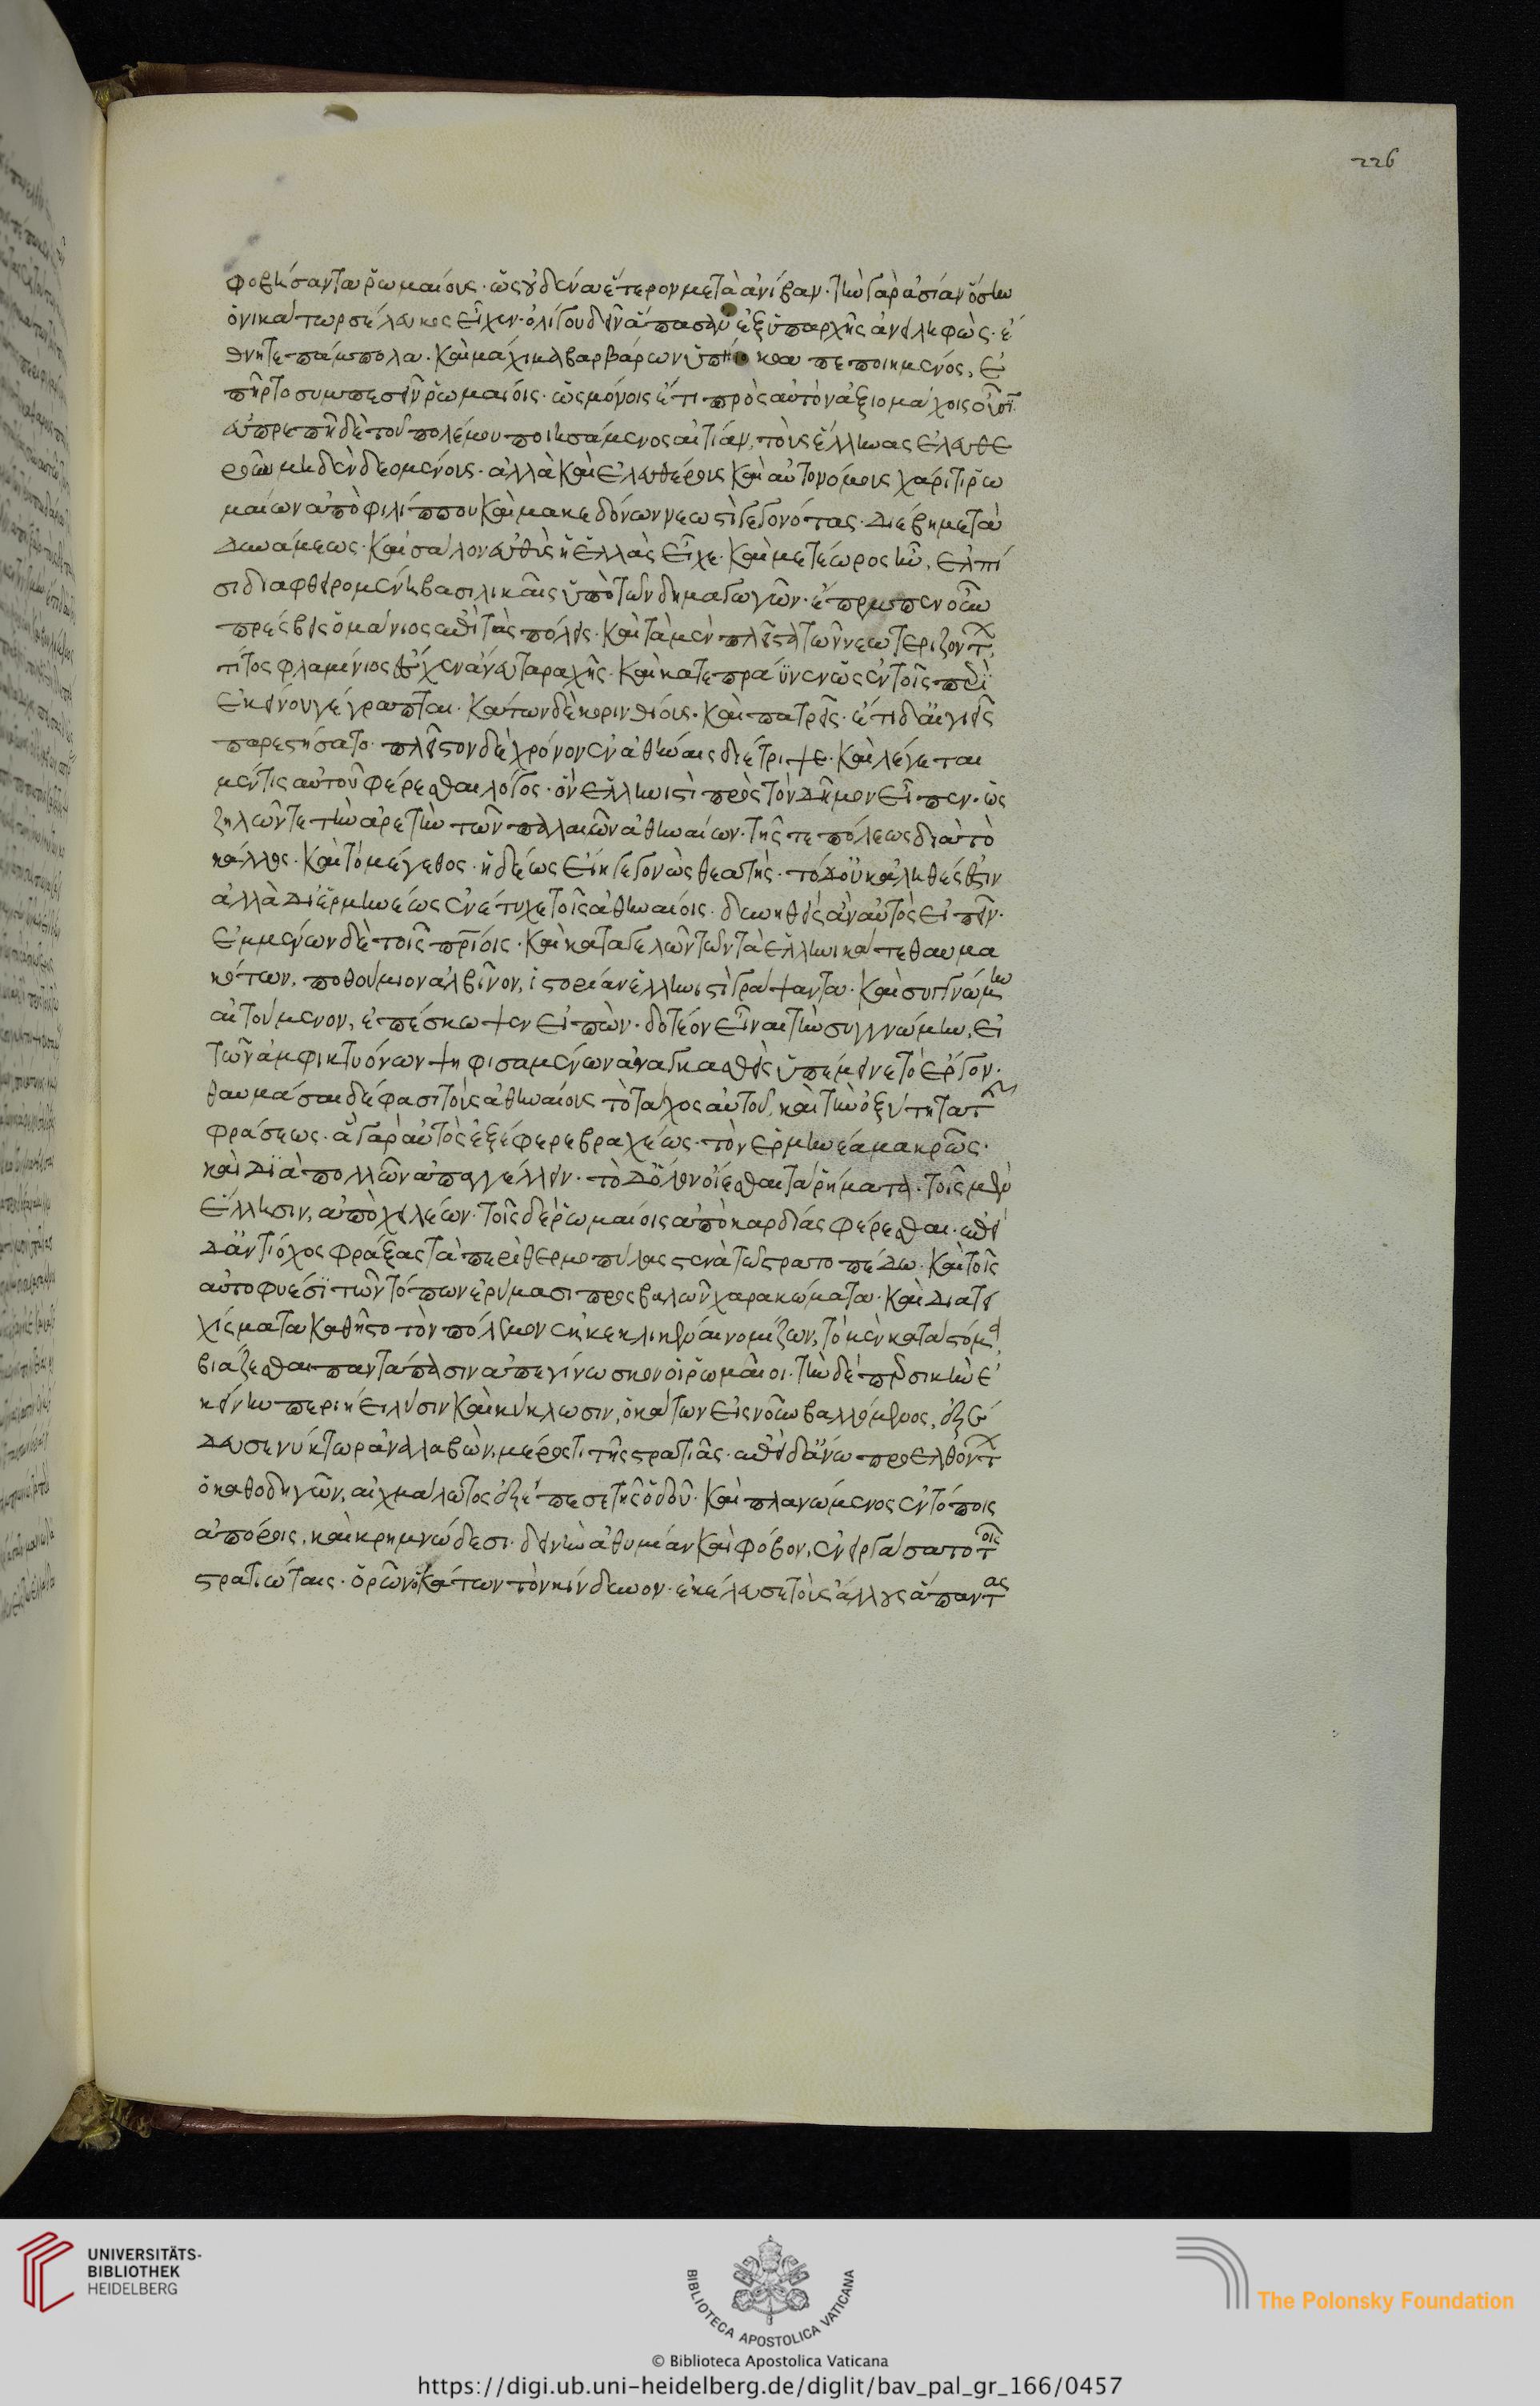 226
φοβήσαντα ῥωμαίους · ὡς οὐδένα ἕτερον μετὰ ἀνίβαν · τὴν γὰρ ἀσίαν ὅσην
ὁ νικάτωρ σέλευκος εἶχεν · ὀλίγου δεῖν ἅπασαν ἐξ ὑπαρχῆς ἀνειληφὼς · ἔ
θνη τε πάμπολα · καὶ μάχιμα βαρβάρων ὑπήκοα πεποιημένος, ἐ
πῆρτο συμπεσεῖν ῥωμαίοις · ὡς μόνοις ἔτι πρὸς αὐτὸν ἀξιομάχοις οὖσι
εὐπρεπῆ δὲ τοῦ πολέμου ποιησάμενος αἰτίαν, τοὺς ἕλληνας ἐλευθε
ροῦν μηδὲν δεομένους · ἀλλὰ καὶ ἐλευθέρους καὶ αὐτονόμους χάριτι ῥω
μαίων ἀπὸ φιλίππου καὶ μακεδόνων νεωστὶ γεγονότας · διέβη μετὰ
δυνάμεως · καὶ σάλον εὐθὺς ἡ ἑλλὰς εἶχε · καὶ μετέωρος ἦν, ἐλπί
σι διαφθειρομένη βασιλικαῖς ὑπὸ τῶν δημαγωγῶν · ἔπεμπεν οὖν
πρέσβεις ὁ μάνιος ἐπὶ τὰς πόλεις · καὶ τὰ μὲν πλεῖστα τῶν νεωτεριζόντ
τίτος φλαμίνιος ἔσχεν ἄνευ ταραχῆς · καὶ κατεπράϋνεν ὡς ἐν τοῖς περὶ
ἐκείνου γέγραπται · κάτων δὲ κορινθίους · καὶ πατρεῖς · ἔτι δ' αἰγιεῖς
παρεστήσατο · πλεῖστον δὲ χρόνον ἐν ἀθήναις διέτριψε · καὶ λέγεται
μέν τις αὐτοῦ φέρεσθαι λόγος · ὃν ἑλληνιστὶ πρὸς τὸν δῆμον εἶπεν · ὡς
ζηλῶν τε τὴν ἀρετὴν τῶν παλαιῶν ἀθηναίων · τῆς τε πόλεως διὰ τὸ
κάλλος · καὶ τὸ μέγεθος · ἡδέως εἴη γεγονὼς θεατής · τὸ δ' οὐκ ἀληθές ἐστιν
ἀλλὰ δι' ἑρμηνέως ἐνέτυχε τοῖς ἀθηναίοις · δυνηθεὶς ἂν αὐτὸς εἰπεῖν ·
ἐμμένων δὲ τοῖς πρίοις · καὶ καταγελῶν τῶν τὰ ἑλληνικὰ τεθαυμα
κότων, ποθούμιον ἀλβῖνον, ἱστορίαν ἑλληνιστὶ γράψαντα · καὶ συγγνώμην
αἰτούμενον, ἐπέσκωψεν εἰπὼν · δοτέον εἶναι τὴν συγγνώμην, εἰ
τῶν ἀμφικτυόνων ψηφισαμένων ἀναγκασθεὶς ὑπέμεινε τὸ ἔργον ·
θαυμάσαι δέ φασι τοὺς ἀθηναίους τὸ τάχος αὐτοῦ, καὶ τὴν ὀξύτητα τῆς
φράσεως · ἃ γὰρ αὐτὸς ἐξέφερε βραχέως · τὸν ἑρμηνέα μακρῶς ·
καὶ διὰ πολλῶν ἀπαγγέλλειν · τὸ δ' ὅλον οἴεσθαι τὰ ῥήματα · τοῖς μὲν
ἕλλησιν, ἀπὸ χειλέων · τοῖς δὲ ῥωμαίοις ἀπὸ καρδίας φέρεσθαι · ἐπεὶ
δ' ἀντίοχος φράξας τὰ περὶ θερμοπύλας στενὰ τῷ στρατοπέδω · καὶ τοῖς
αὐτοφυέσι τῶν τόπων ἐρύμασι προσβαλὼν χαρακώματα · καὶ διατει
χίσματα καθῆστο τὸν πόλεμον ἐκκεκλικέναι νομίζων, τὸ μὲν κατὰ στόμα
βιάζεσθαι παντάπασιν ἀπεγίνωσκον οἱ ῥωμαῖοι · τὴν δὲ περσικὴν ἐ
κείνην περιήειλυσιν καὶ κύκλωσιν, ὁ κάτων εἰς νοῦν βαλλόμενος, ἐξώ
δευσε νύκτωρ ἀναλαβὼν, μέρος τι τῆς στρατιᾶς · ἐπεὶ δ' ἄνω προελθόντ
ὁ καθοδηγῶν, αἰχμάλωτος ἐξέπεσε τῆς ὁδοῦ · καὶ πλανώμενος ἐν τόποις
ἀπόροις, καὶ κρημνώδεσι · δεινὴν ἀθυμίαν καὶ φόβον, ἐνειργάσατο τοῖς
στρατιώταις · ὁρῶν ὁ κάτων τὸν κίνδυνον · ἐκέλευσε τοὺς ἄλλους ἅπαντας
UNIVERSITÄTS-
BIBLIOTHEK
HEIDELBERG
BIBLIOTECA APOSTOLICA VATICANA
The Polonsky Foundation
© Biblioteca Apostolica Vaticana
https://digi.ub.uni-heidelberg.de/diglit/bav_pal_gr_166/0457